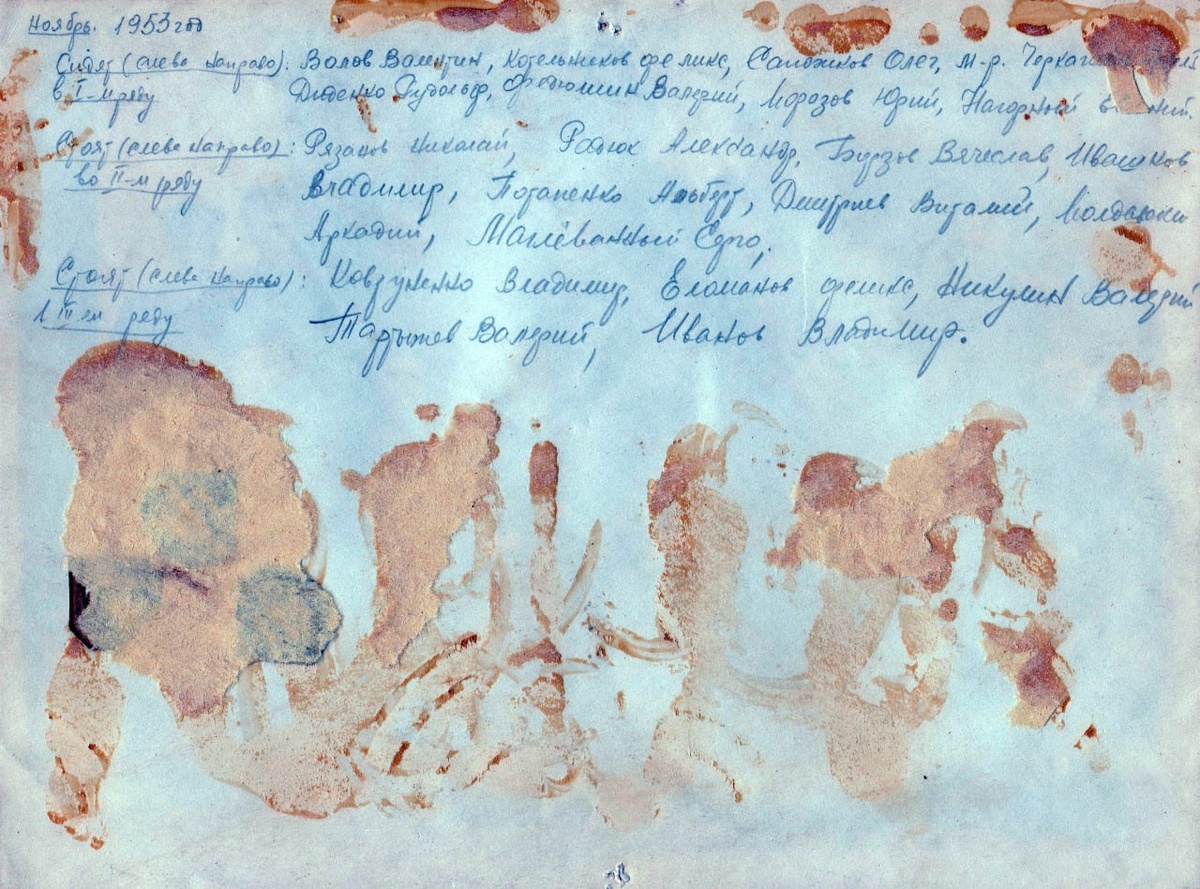 Ноябрь. 1953 год
Сидят (слева направо): Волов Валентин, Котельников Феликс, Сапожников Олег, м-р.
в I-м ряду Диденко Рудольф, Федюшин Валерий, Морозов Юрий, Нагорный
Стоят (слева направо): Рязанов Николай, Радюк Александр, Бурзов Вячеслав, Ивашков
во II-м ряду Владимир, Потапенко Альберт, Дмитриев Виталий,
Аркадий, Малёванный
Стоят (слева направо): Ковзуненко Владимир, Еломанов Феликс, Никулин Валерий
III-м ряду Тартышев Валерий, Иванов Владимир.